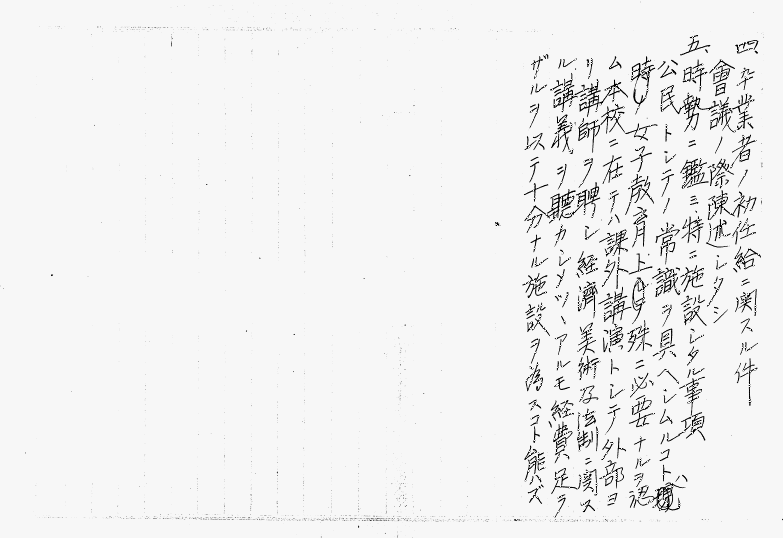 四、卒業者ノ初任給ニ関スル件
會議ノ際陳述シタシ
五、時勢ニ鑑ミ特ニ施設シタル事項
公民トシテノ常識ヲ具ヘシムルコトハ
時 女子教育上 殊ニ必要ナルヲ認
ム本校ニ在テハ課外講演トシテ外部ヨ
リ講師ヲ聘シ経済美術及法制ニ関ス
ル講義ヲ聽カシメツヽアルモ経費足ラ
ザルヲ以テ十分ナル施設ヲ為スコト能ハズ